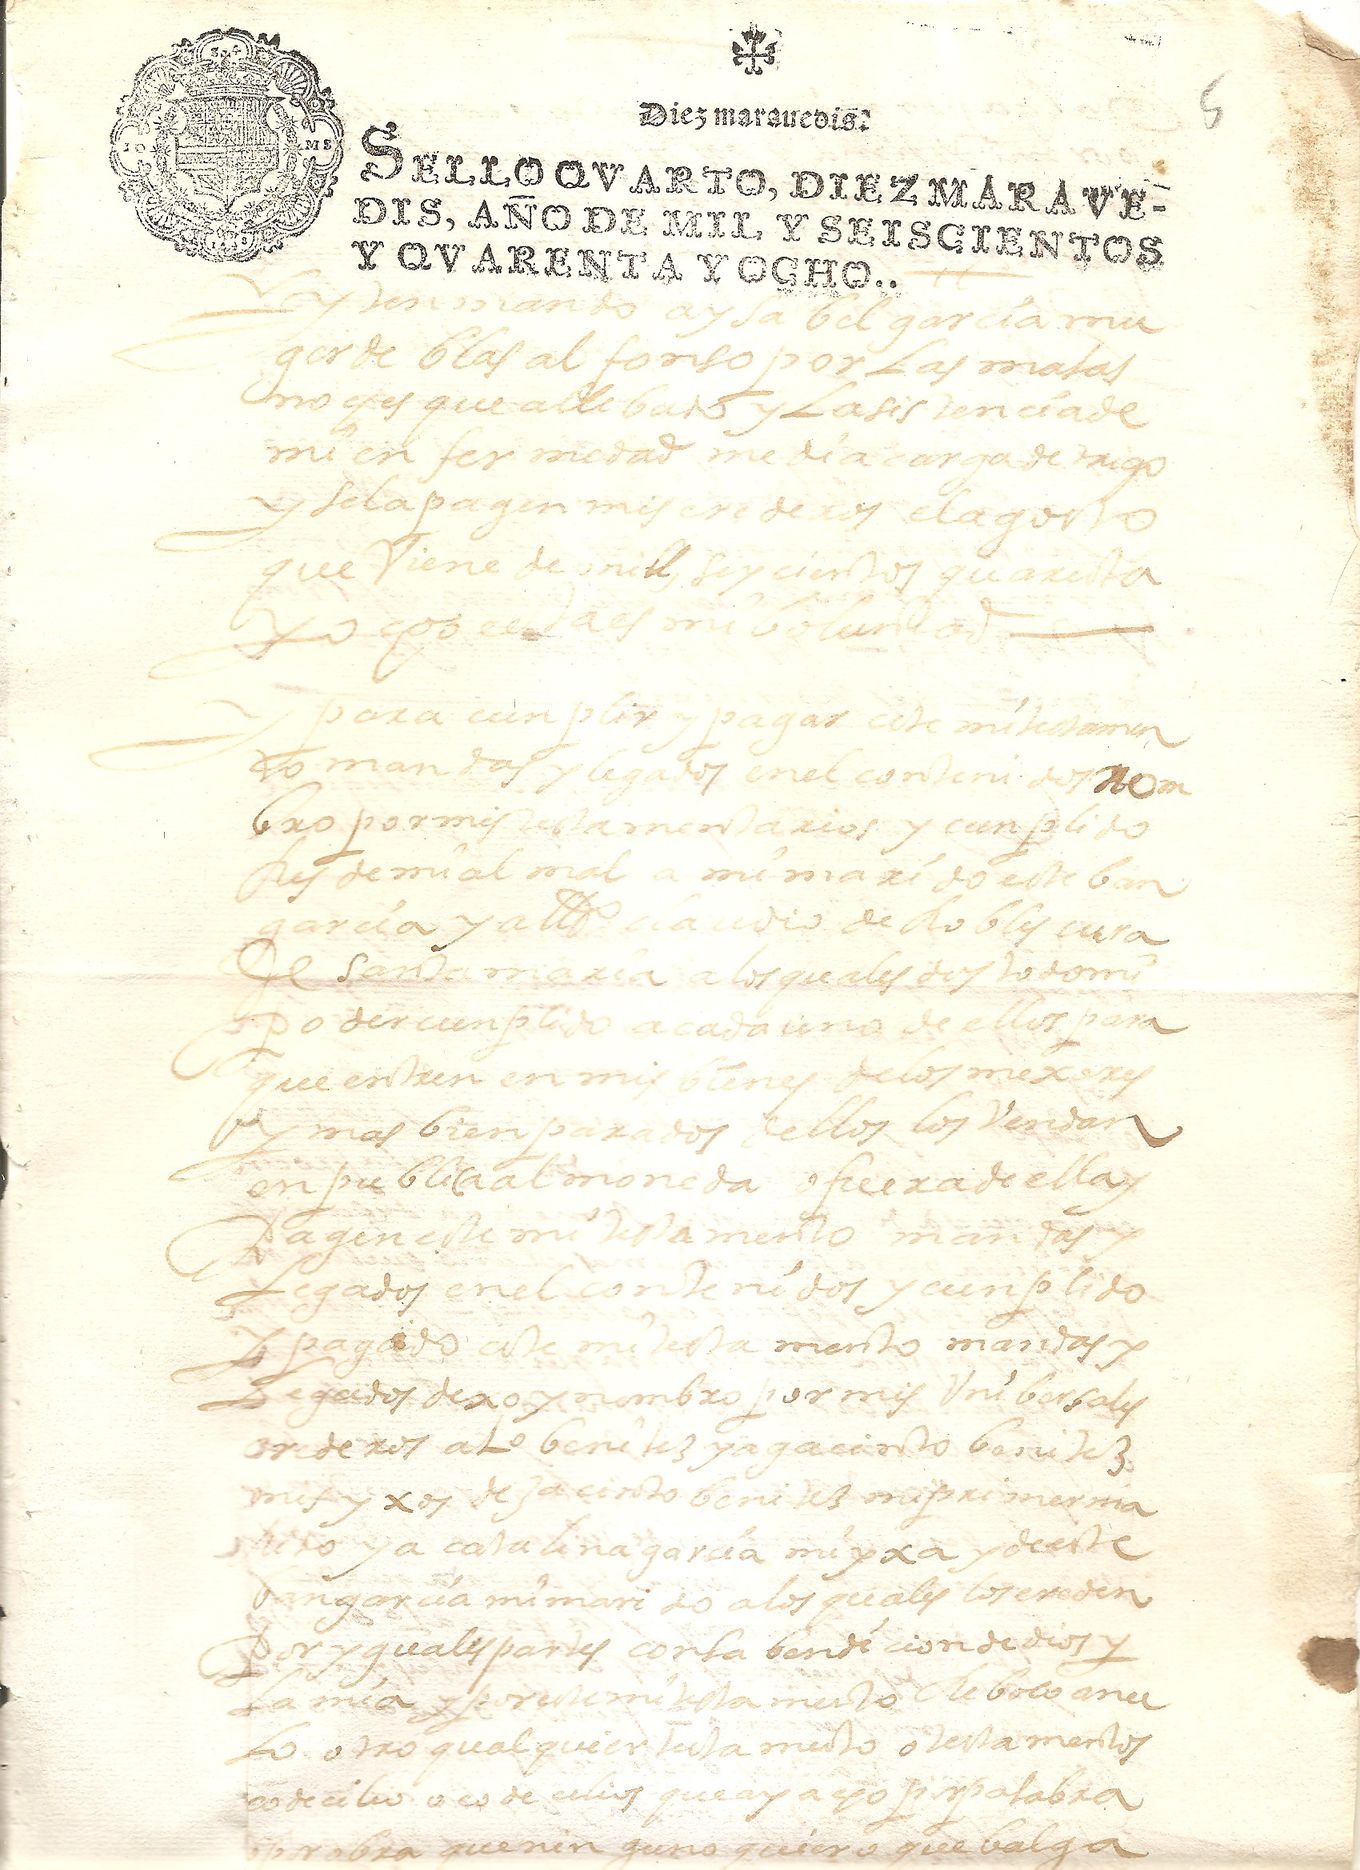 5
Diez marauedis.
SELLO QVARTO, DIEZ MARAVE-
DIS, AÑO DE MIL Y SEISCIENTOS
Y QVARENTA Y OCHO..
yten mando a ysabel garcia mu
ger de blas alfonso por las malas
noches que a llebado y la asistencia de
mi enfermedad media carga de trigo
y se la pagen mis erederos el agosto
que viene de mill seycientos quarenta
y ocho es mi boluntad
y para cunplir y pagar este mi testamen
to mandas y legados en el contenidos nom
bro por mis testamentarios y cunplido
res de mi alma a mi marido este ban
garcia y al claudio de Robles cura
de Santa maria a los quales dos todo mi
poder cunplido a cada uno de ellos para
que entren en mis bienes de los mexores
y mas bien parados dellos los vendan
en publica almoneda o fuera de ella y
pagen este mi testamento mandas y
legados en el contenidos y cunplido
y pagado este mi testamento mandas y
legados dexo y nombro por mis universales
erederos a Lo benitez y a gacinto benitez
mis yxos de jacinto benitez mi primer ma
rido y a catalina garcia mi yxa y de este
ban garcia mi marido a los quales los ereden
por yguales partes con la bendicion de dios y
la mia y por este mi testamento rreboco anu
lo otro qualquier testamento o testamentos
codecilio o codecilios que aya echo por palabra
o por obra que ninguno quiero que balga